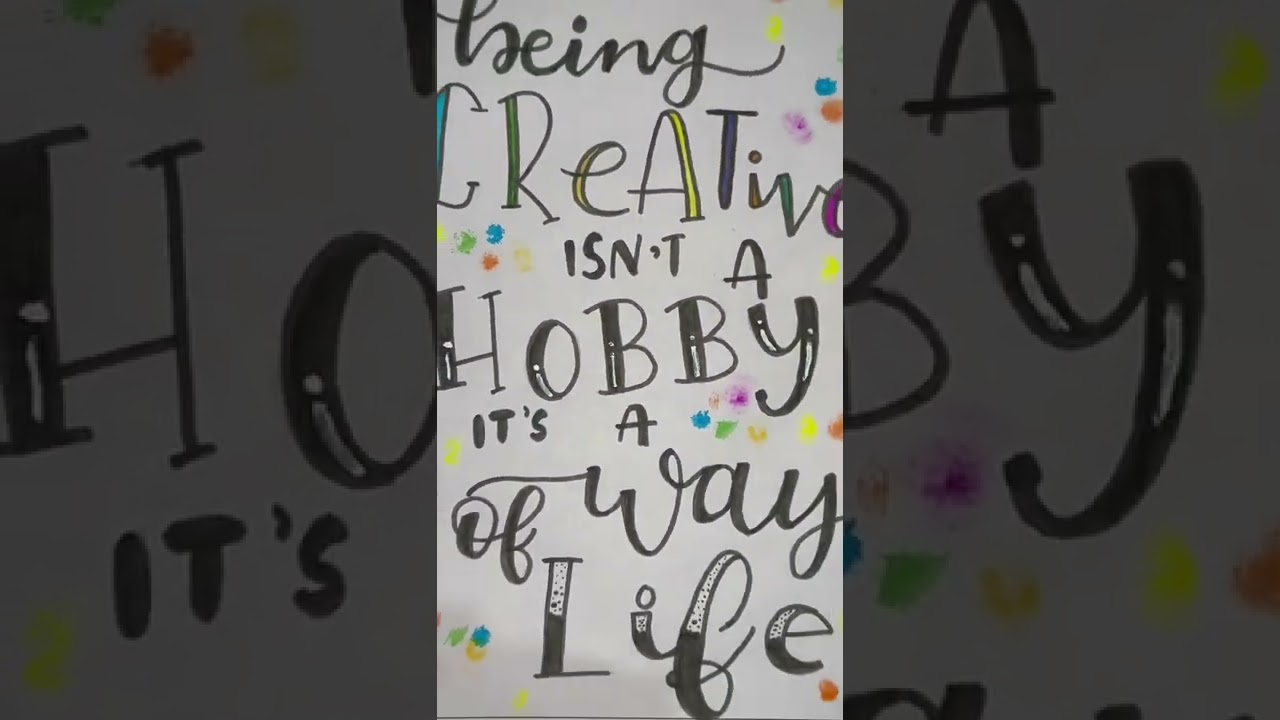 being
CReATive
ISN'T A
HOBBY
IT'S A
way
of
Life